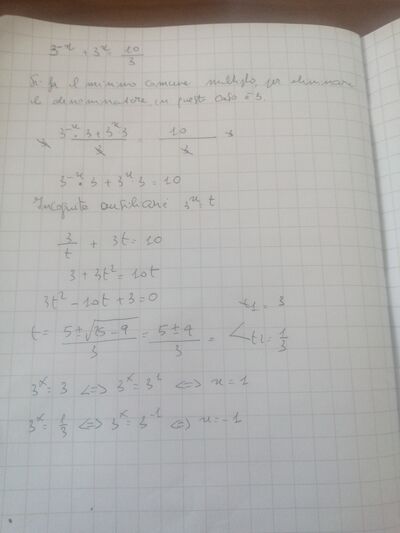 3^-x + 3^x = 10/3
Si fa il minimo comune multiplo, per eliminare
il denominatore in questo caso è 3.
3 (3^-x · 3 + 3^x · 3)/3 = 10/3 · 3
3^-x · 3 + 3^x · 3 = 10
Incognita ausiliare 3^x = t
3/t + 3t = 10
3 + 3t² = 10t
3t² - 10t + 3 = 0
t = (5 ± √(25 - 9))/3 = (5 ± 4)/3 = t1 = 3 t2 = 1/3
3^x = 3 <=> 3^x = 3^1 <=> x = 1
3^x = 1/3 <=> 3^x = 3^-1 <=> x = -1